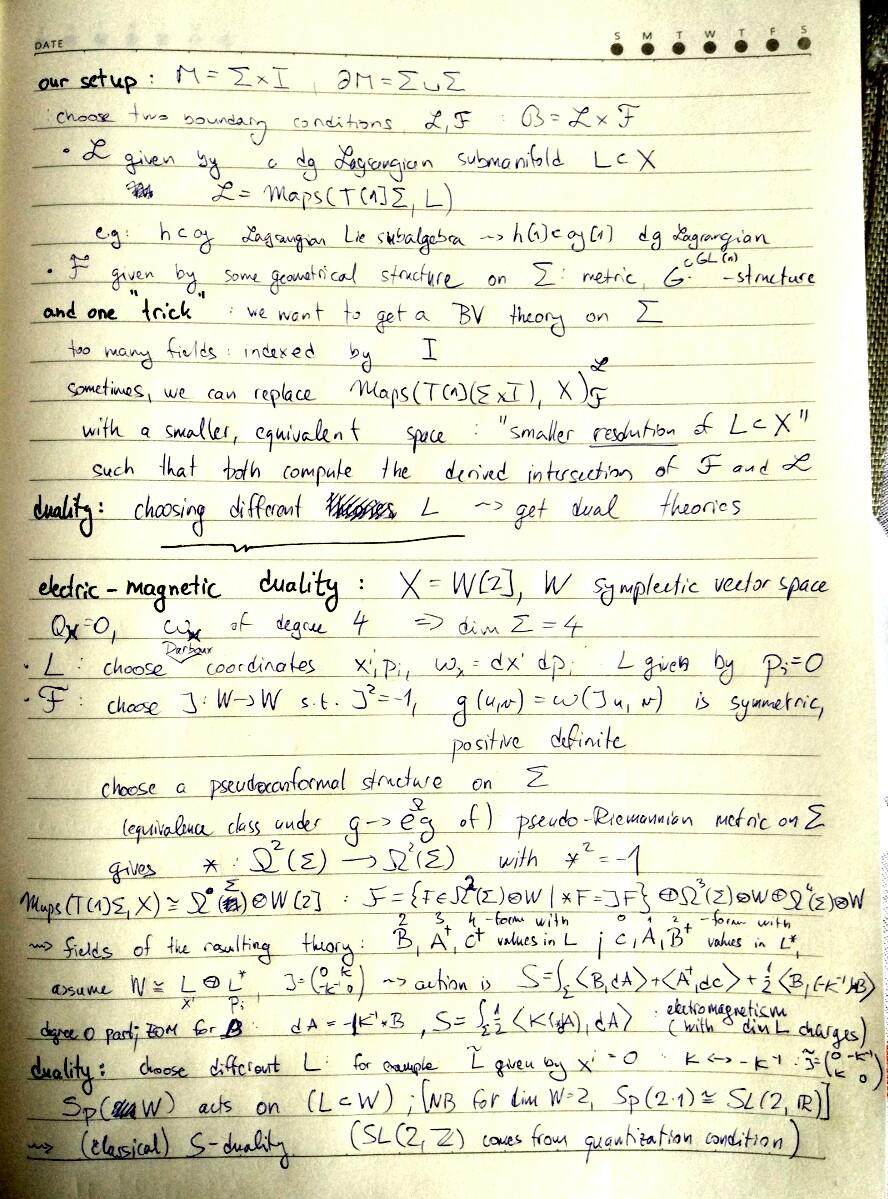 DATE
S M T W T F S
our setup : M = Σ×I , ∂M = Σ ⊔ Σ
choose two boundary conditions ℒ, ℱ : ℬ = ℒ × ℱ
• ℒ given by a dg Lagrangian submanifold L ⊂ X
ℒ = Maps(T[1]Σ, L)
e.g: h ⊂ g Lagrangian Lie subalgebra ⇝ h[1] ⊂ g[1] dg Lagrangian
• ℱ given by some geometrical structure on Σ: metric, G ⊂ GL(n) -structure
and one "trick" : we want to get a BV theory on Σ
too many fields: indexed by I
sometimes, we can replace Maps(T[1](Σ×I), X)^ℒ_ℱ
with a smaller, equivalent space : "smaller resolution of L ⊂ X"
such that both compute the derived intersection of ℱ and ℒ
duality: choosing different L ⇝ get dual theories
electric-magnetic duality : X = W[2], W symplectic vector space
Q_X = 0, ω_X of degree 4 ⇒ dim Σ = 4
• L : choose Darboux coordinates xⁱ, pᵢ, ω_X = dxⁱ dpᵢ L given by pᵢ = 0
• ℱ : choose J: W→W s.t. J² = -1, g(u,v) = ω(Ju, v) is symmetric,
positive definite
choose a pseudoconformal structure on Σ
(equivalence class under g → e^Ω g of) pseudo-Riemannian metric on Σ
gives * : Ω²(Σ) → Ω²(Σ) with *² = -1
Maps(T[1]Σ, X) ≅ Ω•(Σ)⊗W[2] : ℱ = {F∈Ω²(Σ)⊗W | *F = JF} ⊕ Ω³(Σ)⊗W ⊕ Ω⁴(Σ)⊗W
2 3 4 -form with 0 1 2 -form with
⇝ fields of the resulting theory: B, A⁺, c⁺ values in L ; c, A, B⁺ values in L*,
assume W ≅ L ⊕ L*, J = (0 K / -K⁻¹ 0) ⇝ action is S = ∫_Σ ⟨B, dA⟩ + ⟨A⁺, dc⟩ + ½⟨B, (-K⁻¹)*B⟩
xⁱ pᵢ
degree 0 part; EOM for B: dA = -K⁻¹*B , S = ∫_Σ ½⟨K(*dA), dA⟩ : electromagnetism
(with dim L charges)
duality: choose different L: for example L̃ given by xⁱ = 0 : K ↔ -K⁻¹ : J̃ = (0 -K⁻¹ / K 0)
Sp(W) acts on (L ⊂ W) ; [NB for dim W=2, Sp(2·1) ≅ SL(2, ℝ)]
⇝ (classical) S-duality (SL(2, ℤ) comes from quantization condition)